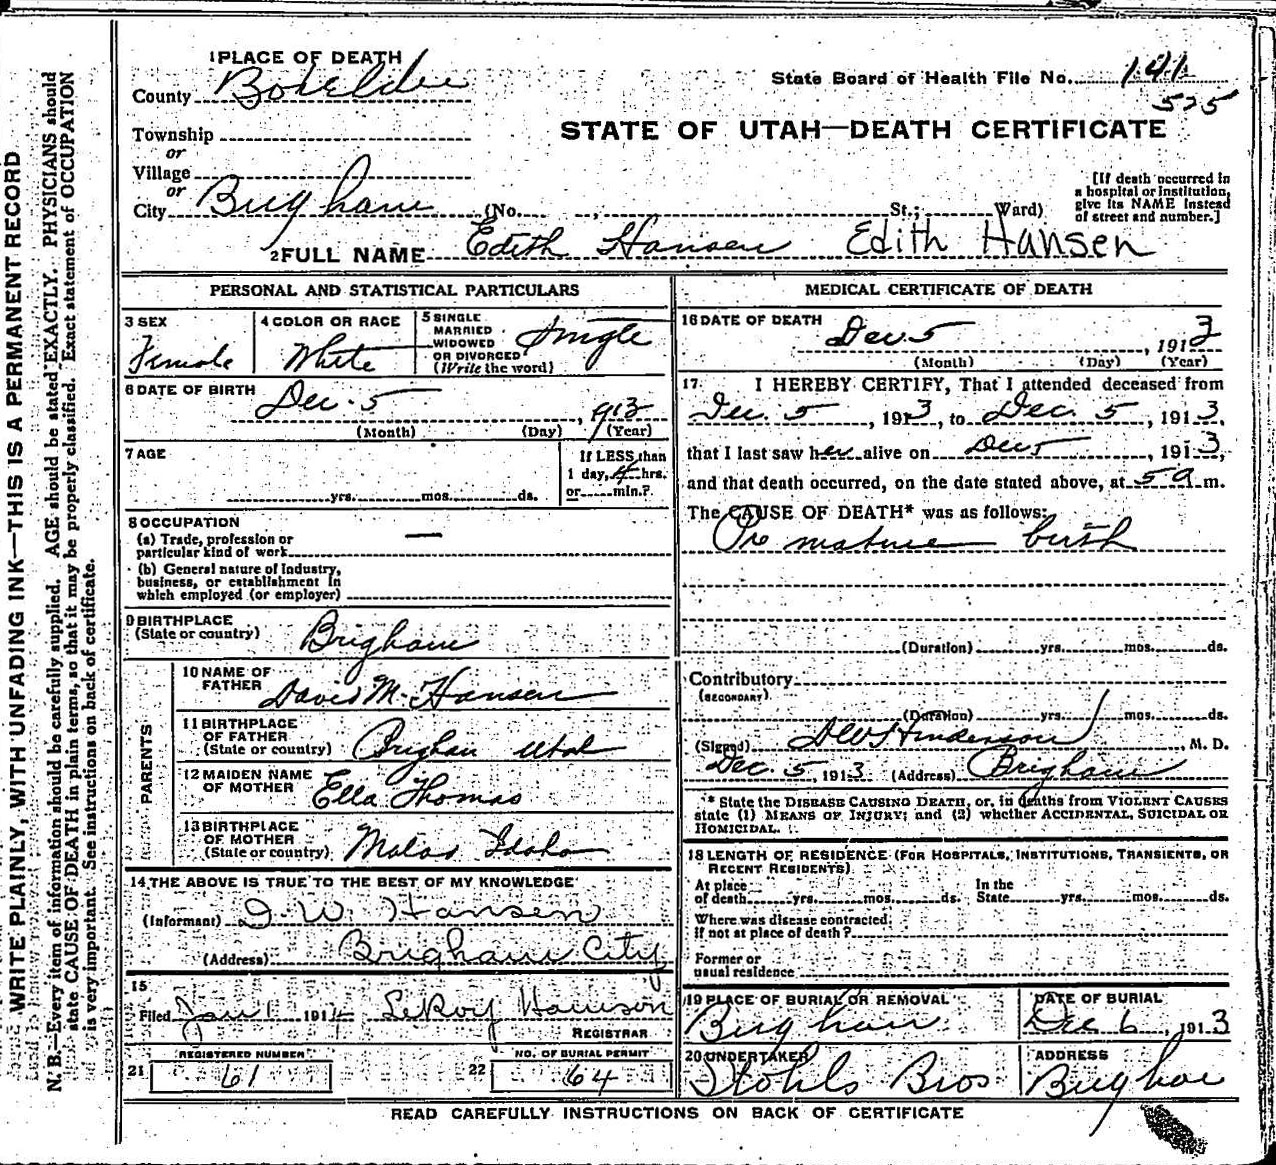 1 PLACE OF DEATH
County Boxelder
State Board of Health File No. 141
525
Township
or
Village
or
City Brigham (No. , St.; Ward)
STATE OF UTAH—DEATH CERTIFICATE
[If death occurred in
a hospital or institution,
give its NAME instead
of street and number.]
2 FULL NAME Edith Hansen Edith Hansen
PERSONAL AND STATISTICAL PARTICULARS
3 SEX
Female
4 COLOR OR RACE
White
5 SINGLE
MARRIED
WIDOWED
OR DIVORCED
(Write the word)
Single
6 DATE OF BIRTH
Dec. 5, 913
(Month) (Day) (Year)
7 AGE
yrs. mos. ds.
If LESS than
1 day, 4 hrs.
or min.?
8 OCCUPATION
(a) Trade, profession or
particular kind of work —
(b) General nature of Industry,
business, or establishment in
which employed (or employer)
9 BIRTHPLACE
(State or country) Brigham
PARENTS
10 NAME OF
FATHER David M. Hansen
11 BIRTHPLACE
OF FATHER
(State or country) Brigham Utah
12 MAIDEN NAME
OF MOTHER Ella Thomas
13 BIRTHPLACE
OF MOTHER
(State or country) Malad Idaho
14 THE ABOVE IS TRUE TO THE BEST OF MY KNOWLEDGE
(Informant) J. W. Hansen
(Address) Brigham City
15
Filed Jan 1 1914 LeRoy
REGISTRAR
REGISTERED NUMBER
21 61
NO. OF BURIAL PERMIT
22 64
MEDICAL CERTIFICATE OF DEATH
16 DATE OF DEATH
Dec. 5, 1913
(Month) (Day) (Year)
17. I HEREBY CERTIFY, That I attended deceased from
Dec. 5, 1913, to Dec. 5, 1913,
that I last saw her alive on Dec 5, 1913,
and that death occurred, on the date stated above, at 5 a m.
The CAUSE OF DEATH* was as follows:
Pre mature birth
(Duration) yrs. mos. ds.
Contributory
(SECONDARY)
(Duration) yrs. mos. ds.
(Signed) Henderson, M. D.
Dec. 5, 1913 (Address) Brigham
* State the DISEASE CAUSING DEATH, or, in deaths from VIOLENT CAUSES
state (1) MEANS OF INJURY; and (2) whether ACCIDENTAL, SUICIDAL OR
HOMICIDAL.
18 LENGTH OF RESIDENCE (FOR HOSPITALS, INSTITUTIONS, TRANSIENTS, OR
RECENT RESIDENTS)
At place
of death yrs. mos. ds.
In the
State yrs. mos. ds.
Where was disease contracted
If not at place of death?
Former or
usual residence
19 PLACE OF BURIAL OR REMOVAL
Brigham
DATE OF BURIAL
Dec 6, 1913
20 UNDERTAKER
Stohls Bros
ADDRESS
READ CAREFULLY INSTRUCTIONS ON BACK OF CERTIFICATE
WRITE PLAINLY, WITH UNFADING INK—THIS IS A PERMANENT RECORD
N. B.—Every item of information should be carefully supplied. AGE should be stated EXACTLY. PHYSICIANS should
state CAUSE OF DEATH in plain terms, so that it may be properly classified. Exact statement of OCCUPATION
is very important. See instructions on back of certificate.